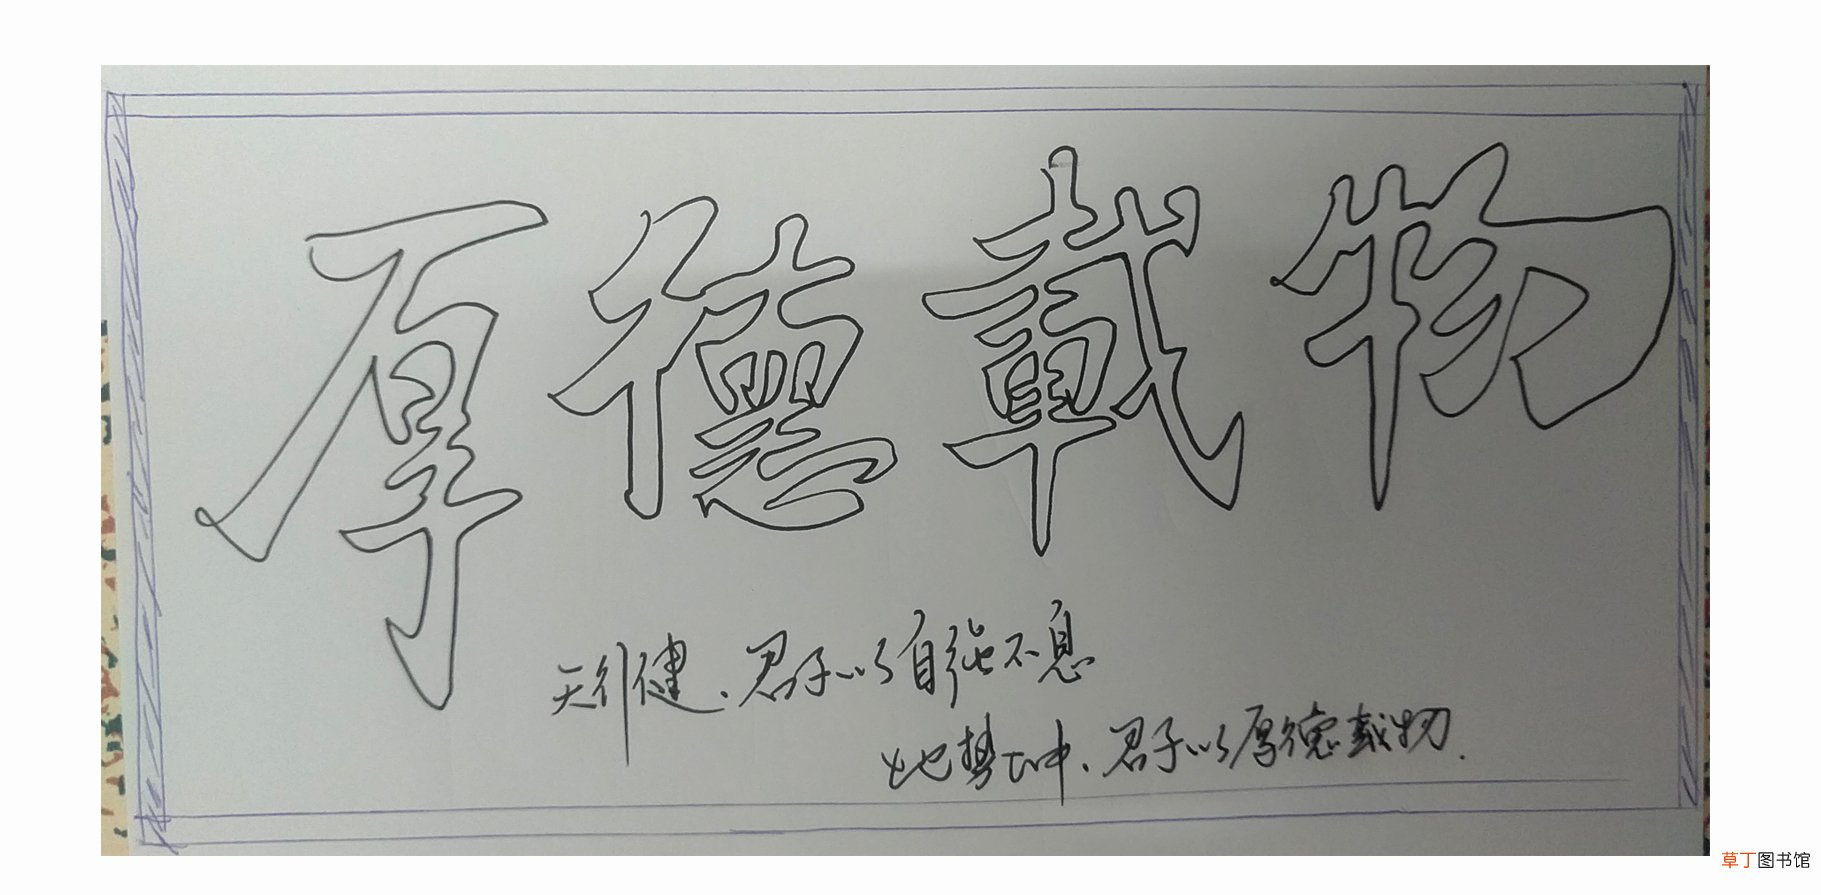 厚德载物
天行健、君子以自强不息
地势坤、君子以厚德载物.
草丁图书馆